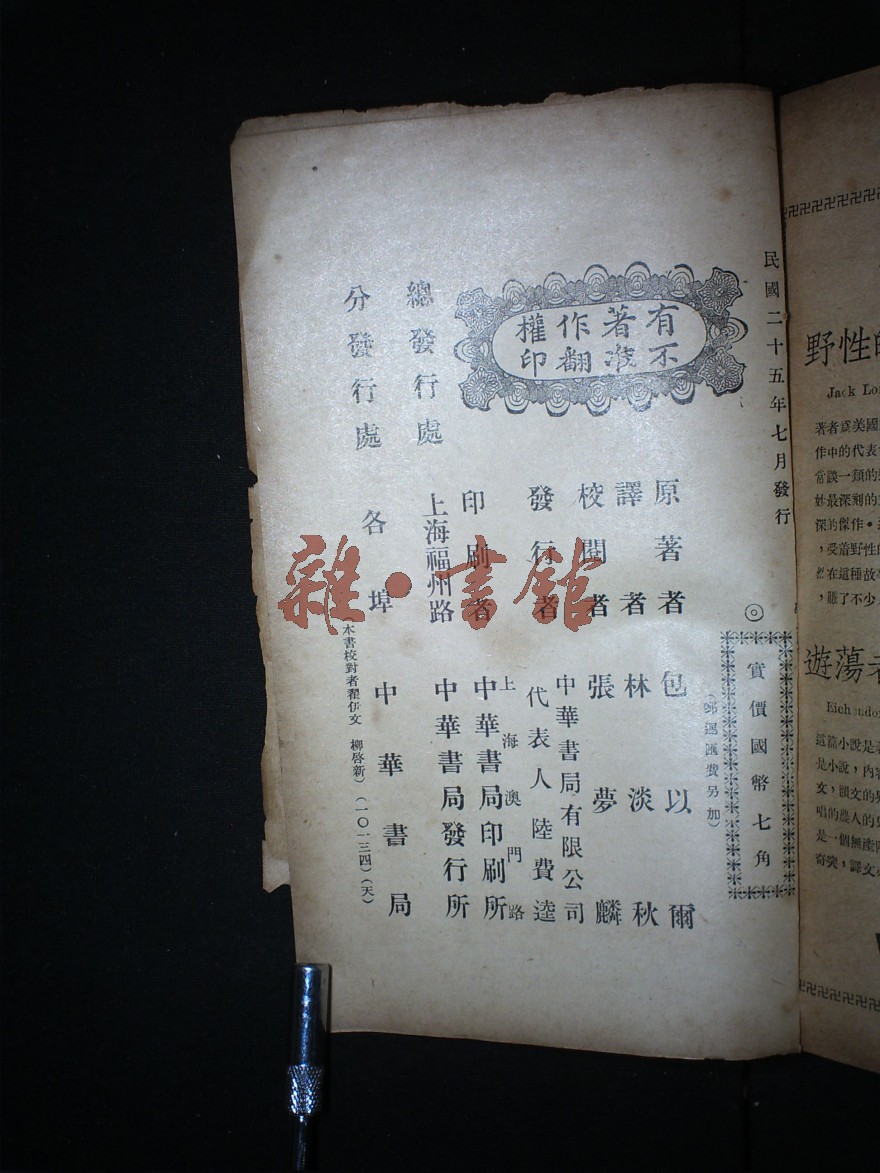 民國二十五年七月發行
有著作權
不准翻印
◎
實價國幣七角
(郵運匯費另加)
原著者 包以爾
譯者 林淡秋
校閱者 張夢麟
發行者 中華書局有限公司
代表人陸費逵
印刷者 上海澳門路
中華書局印刷所
總發行處 上海福州路
中華書局發行所
分發行處 各埠 中華書局
(本書校對者翟併文 柳啓新)(一〇一三四)(天)
雜·書館
野性的
Jack Lon
著者爲美國
作中的代表
常談一類的
妙最深刻的
深的傑作・
,受着野性的
然在這種故事
,賺了不少
遊蕩者
Eichendor
這篇小說是
是小說,內容
文,韻文的
唱的農人的
是一個無產
奇突,譯文